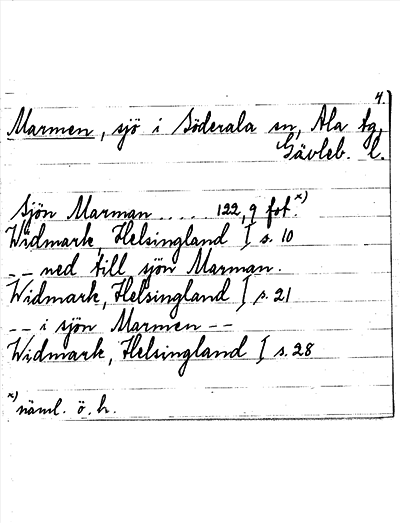 4.
Marmen, sjö i Söderala sn, Ala tg,
Gävleb. l.
Sjön Marman .... 122,9 fot.x)
Widmark, Helsingland I s. 10
-- ned till sjön Marman.
Widmark, Helsingland I s. 21
-- i sjön Marmen --
Widmark, Helsingland I s. 28
x) näml. ö. h.